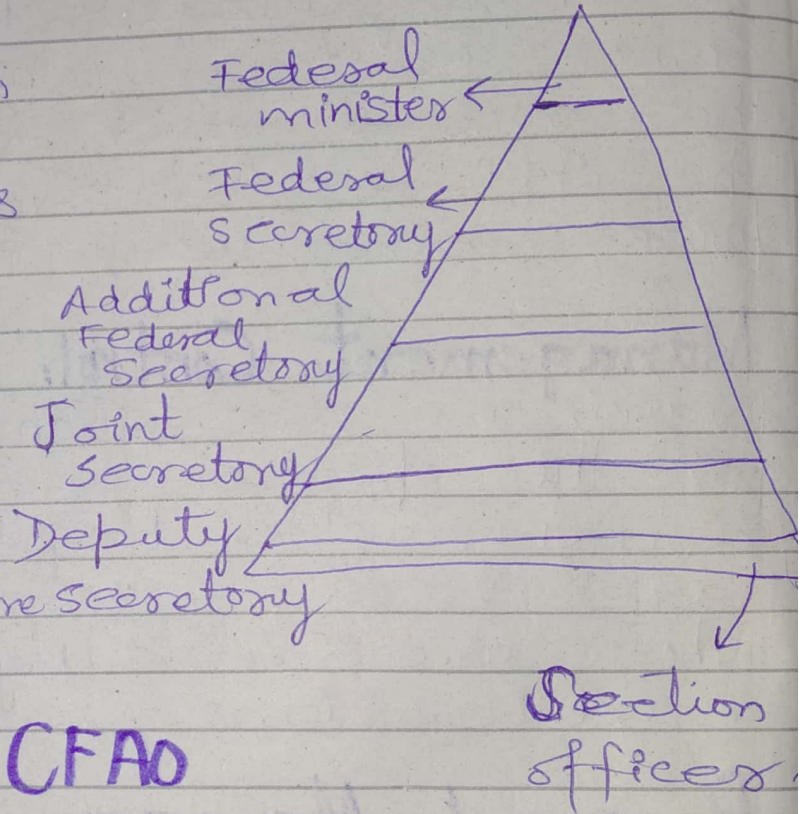 Federal
minister
Federal
secretory
Additional
Federal
secretory
Joint
secretory
Deputy
secretory
Section
officer
CFAO